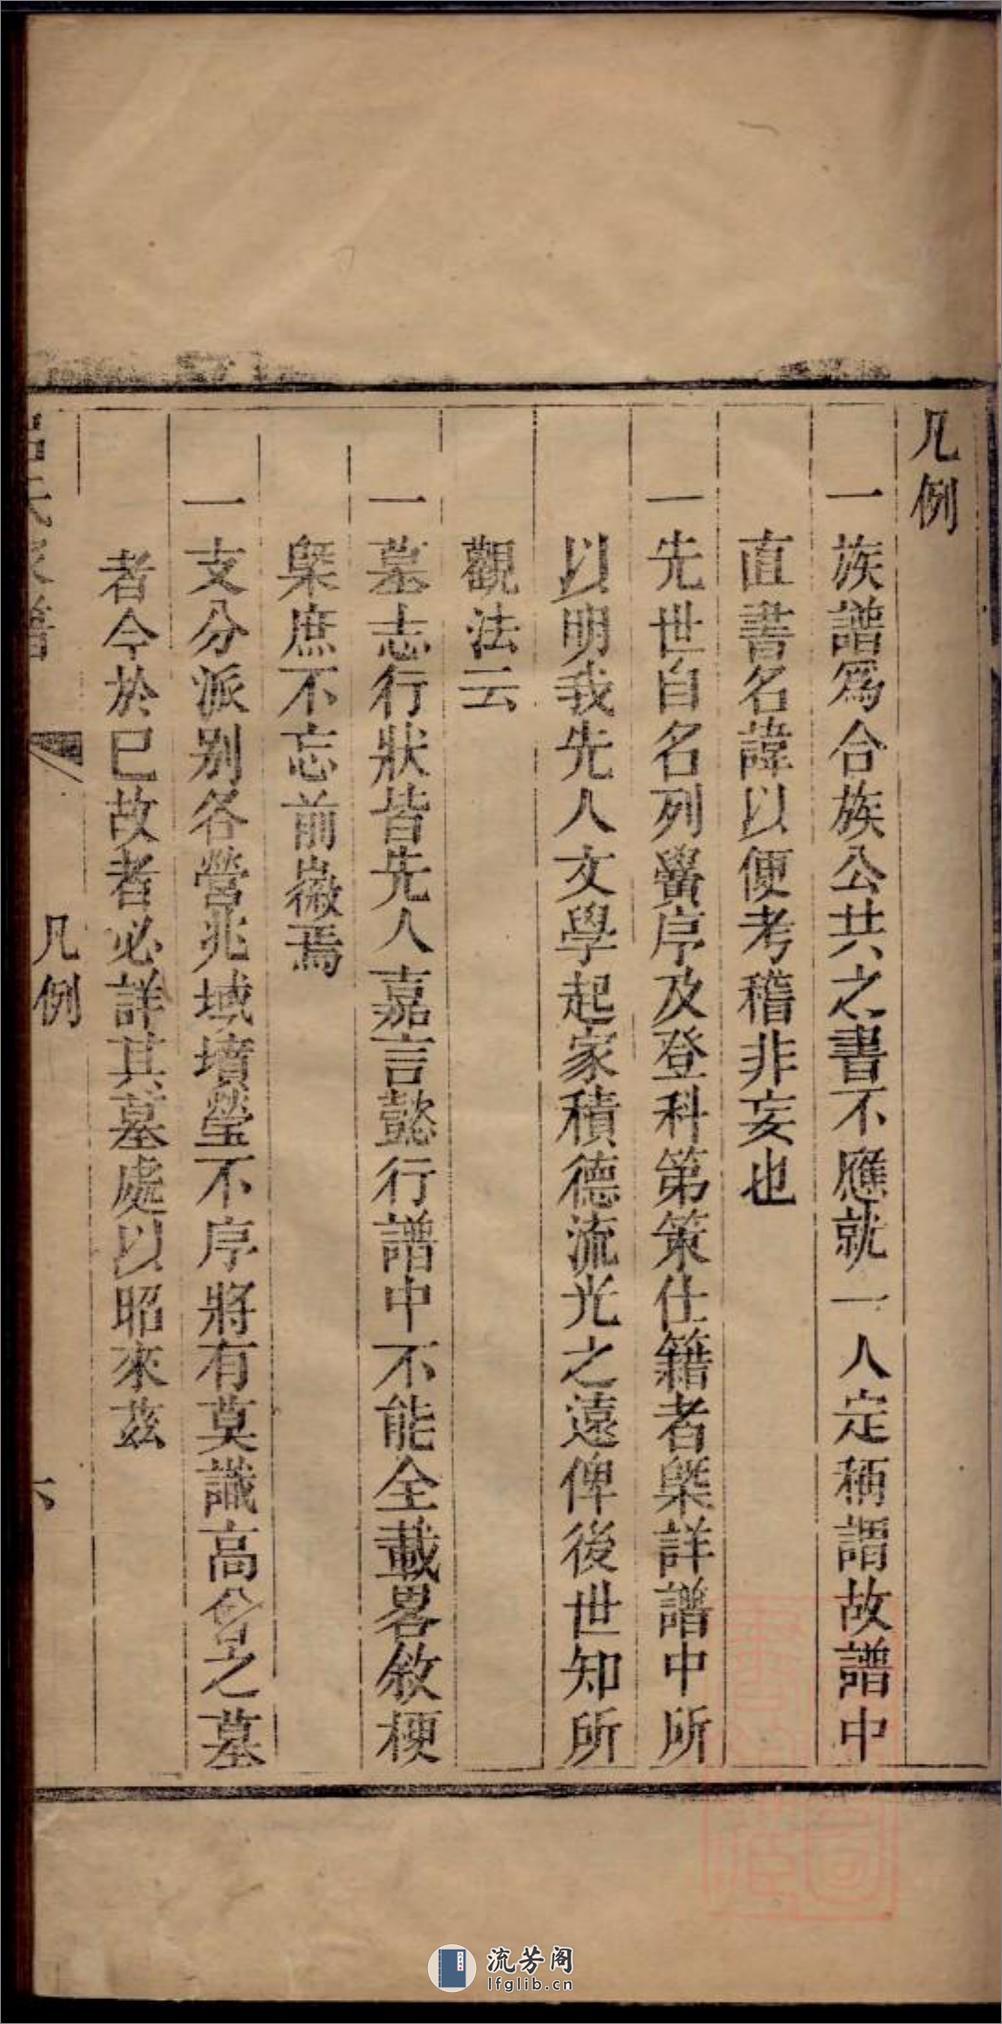 凡例
一族譜爲合族公共之書不應就一人定稱謂故譜中
直書名諱以便考稽非妄也
一先世自名列黌序及登科第策仕籍者槩詳譜中所
以明我先人文學起家積德流光之遠俾後世知所
觀法云
一墓志行狀皆先人嘉言懿行譜中不能全載畧敘梗
槩庶不忘前徽焉
一支分派别各營兆域墳塋不序將有莫識高曾之墓
者今於已故者必詳其墓處以昭來茲
氏家譜
凡例
六
流芳阁
lfglib.cn